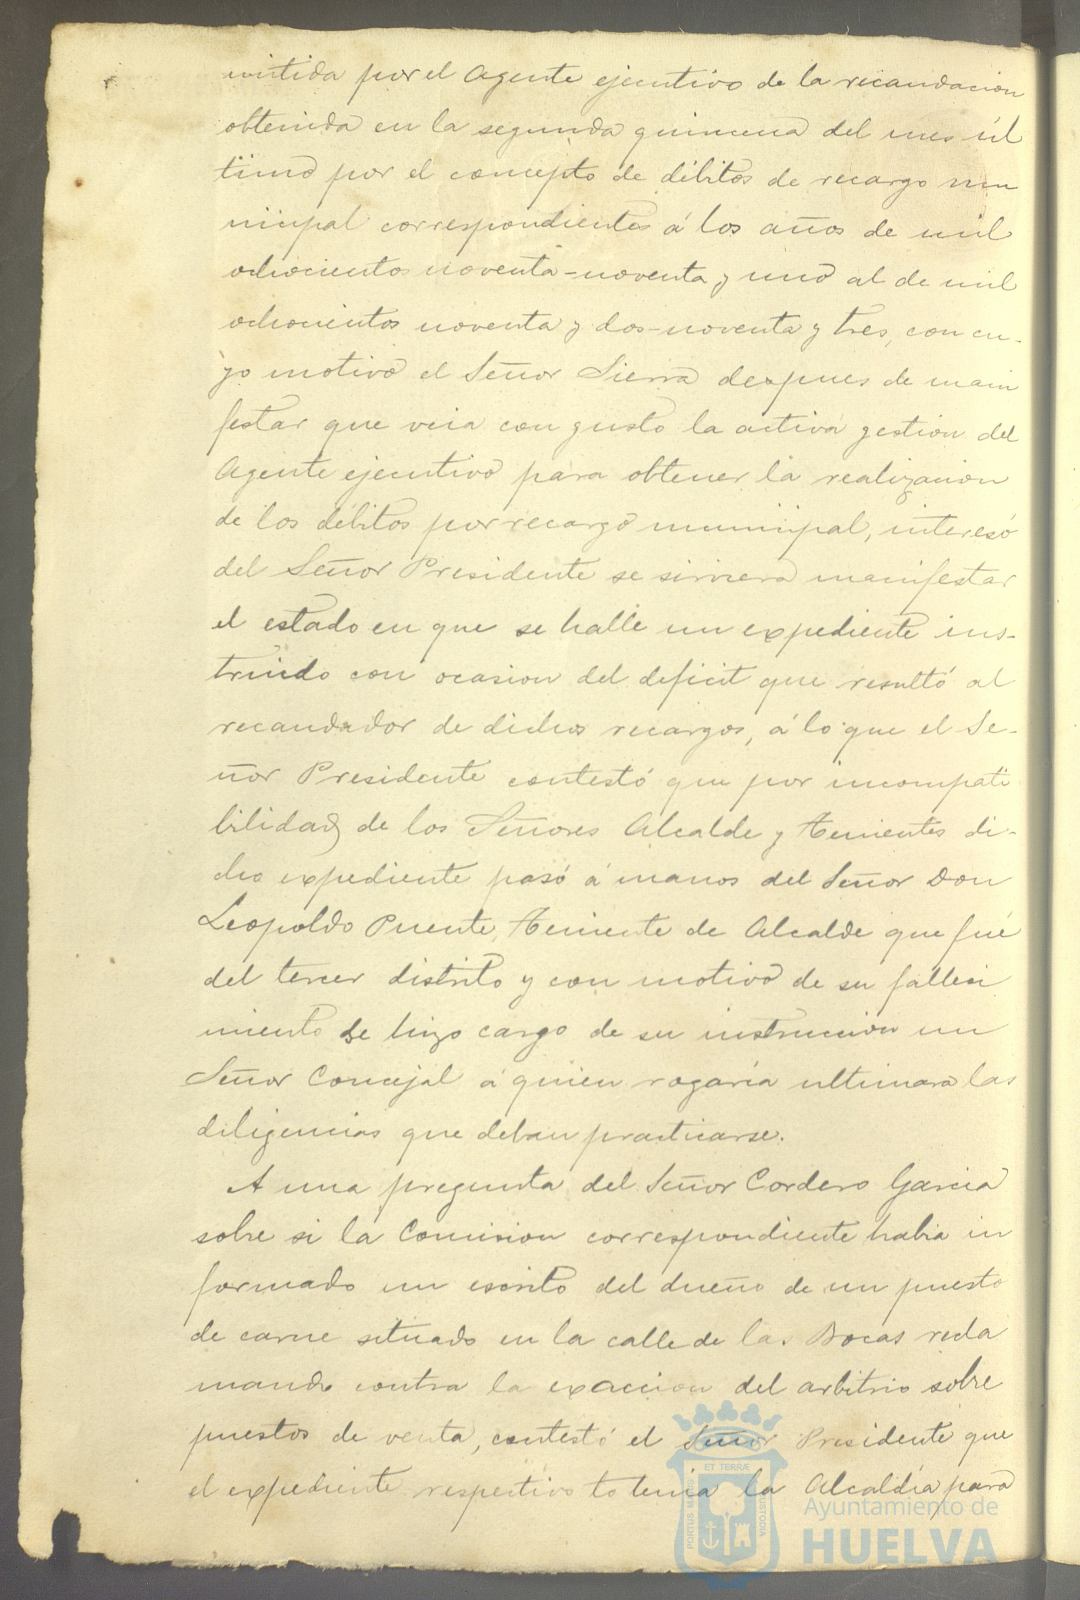 mitida por el Agente ejecutivo de la recaudacion
obtenida en la segunda quincena del mes úl
timo por el concepto de débitos de recargo mu
nicipal correspondientes á los años de mil
ochocientos noventa-noventa y uno al de mil
ochocientos noventa y dos-noventa y tres, con cu-
yo motivo el Señor Sierra despues de mani
festar que veia con gusto la activa gestion del
Agente ejecutivo para obtener la realizacion
de los débitos por recargo municipal, interesó
del Señor Presidente se sirviera manifestar
el estado en que se halle un expediente ins-
truido con ocasion del deficit que resultó al
recaudador de dichos recargos, á lo que el Se-
ñor Presidente contestó que por incompati
bilidad de los Señores Alcalde y Tenientes di-
cho expediente pasó á manos del Señor Don
Leopoldo Puente, Teniente de Alcalde que fué
del tercer distrito y con motivo de su falleci
miento se hizo cargo de su instruccion un
Señor Concejal á quien rogaría ultimara las
diligencias que deban practicarse.
A una pregunta del Señor Cordero Garcia
sobre si la Comision correspondiente habia in
formado un escrito del dueño de un puesto
de carne situado en la calle de las Bocas recla
mando contra la exaccion del arbitrio sobre
puestos de venta, contestó el Señor Presidente que
el expediente respectivo lo tenía la Alcaldía para
ET TERRÆ
PORTUS MARIS
CUSTODIA
Ayuntamiento de
HUELVA